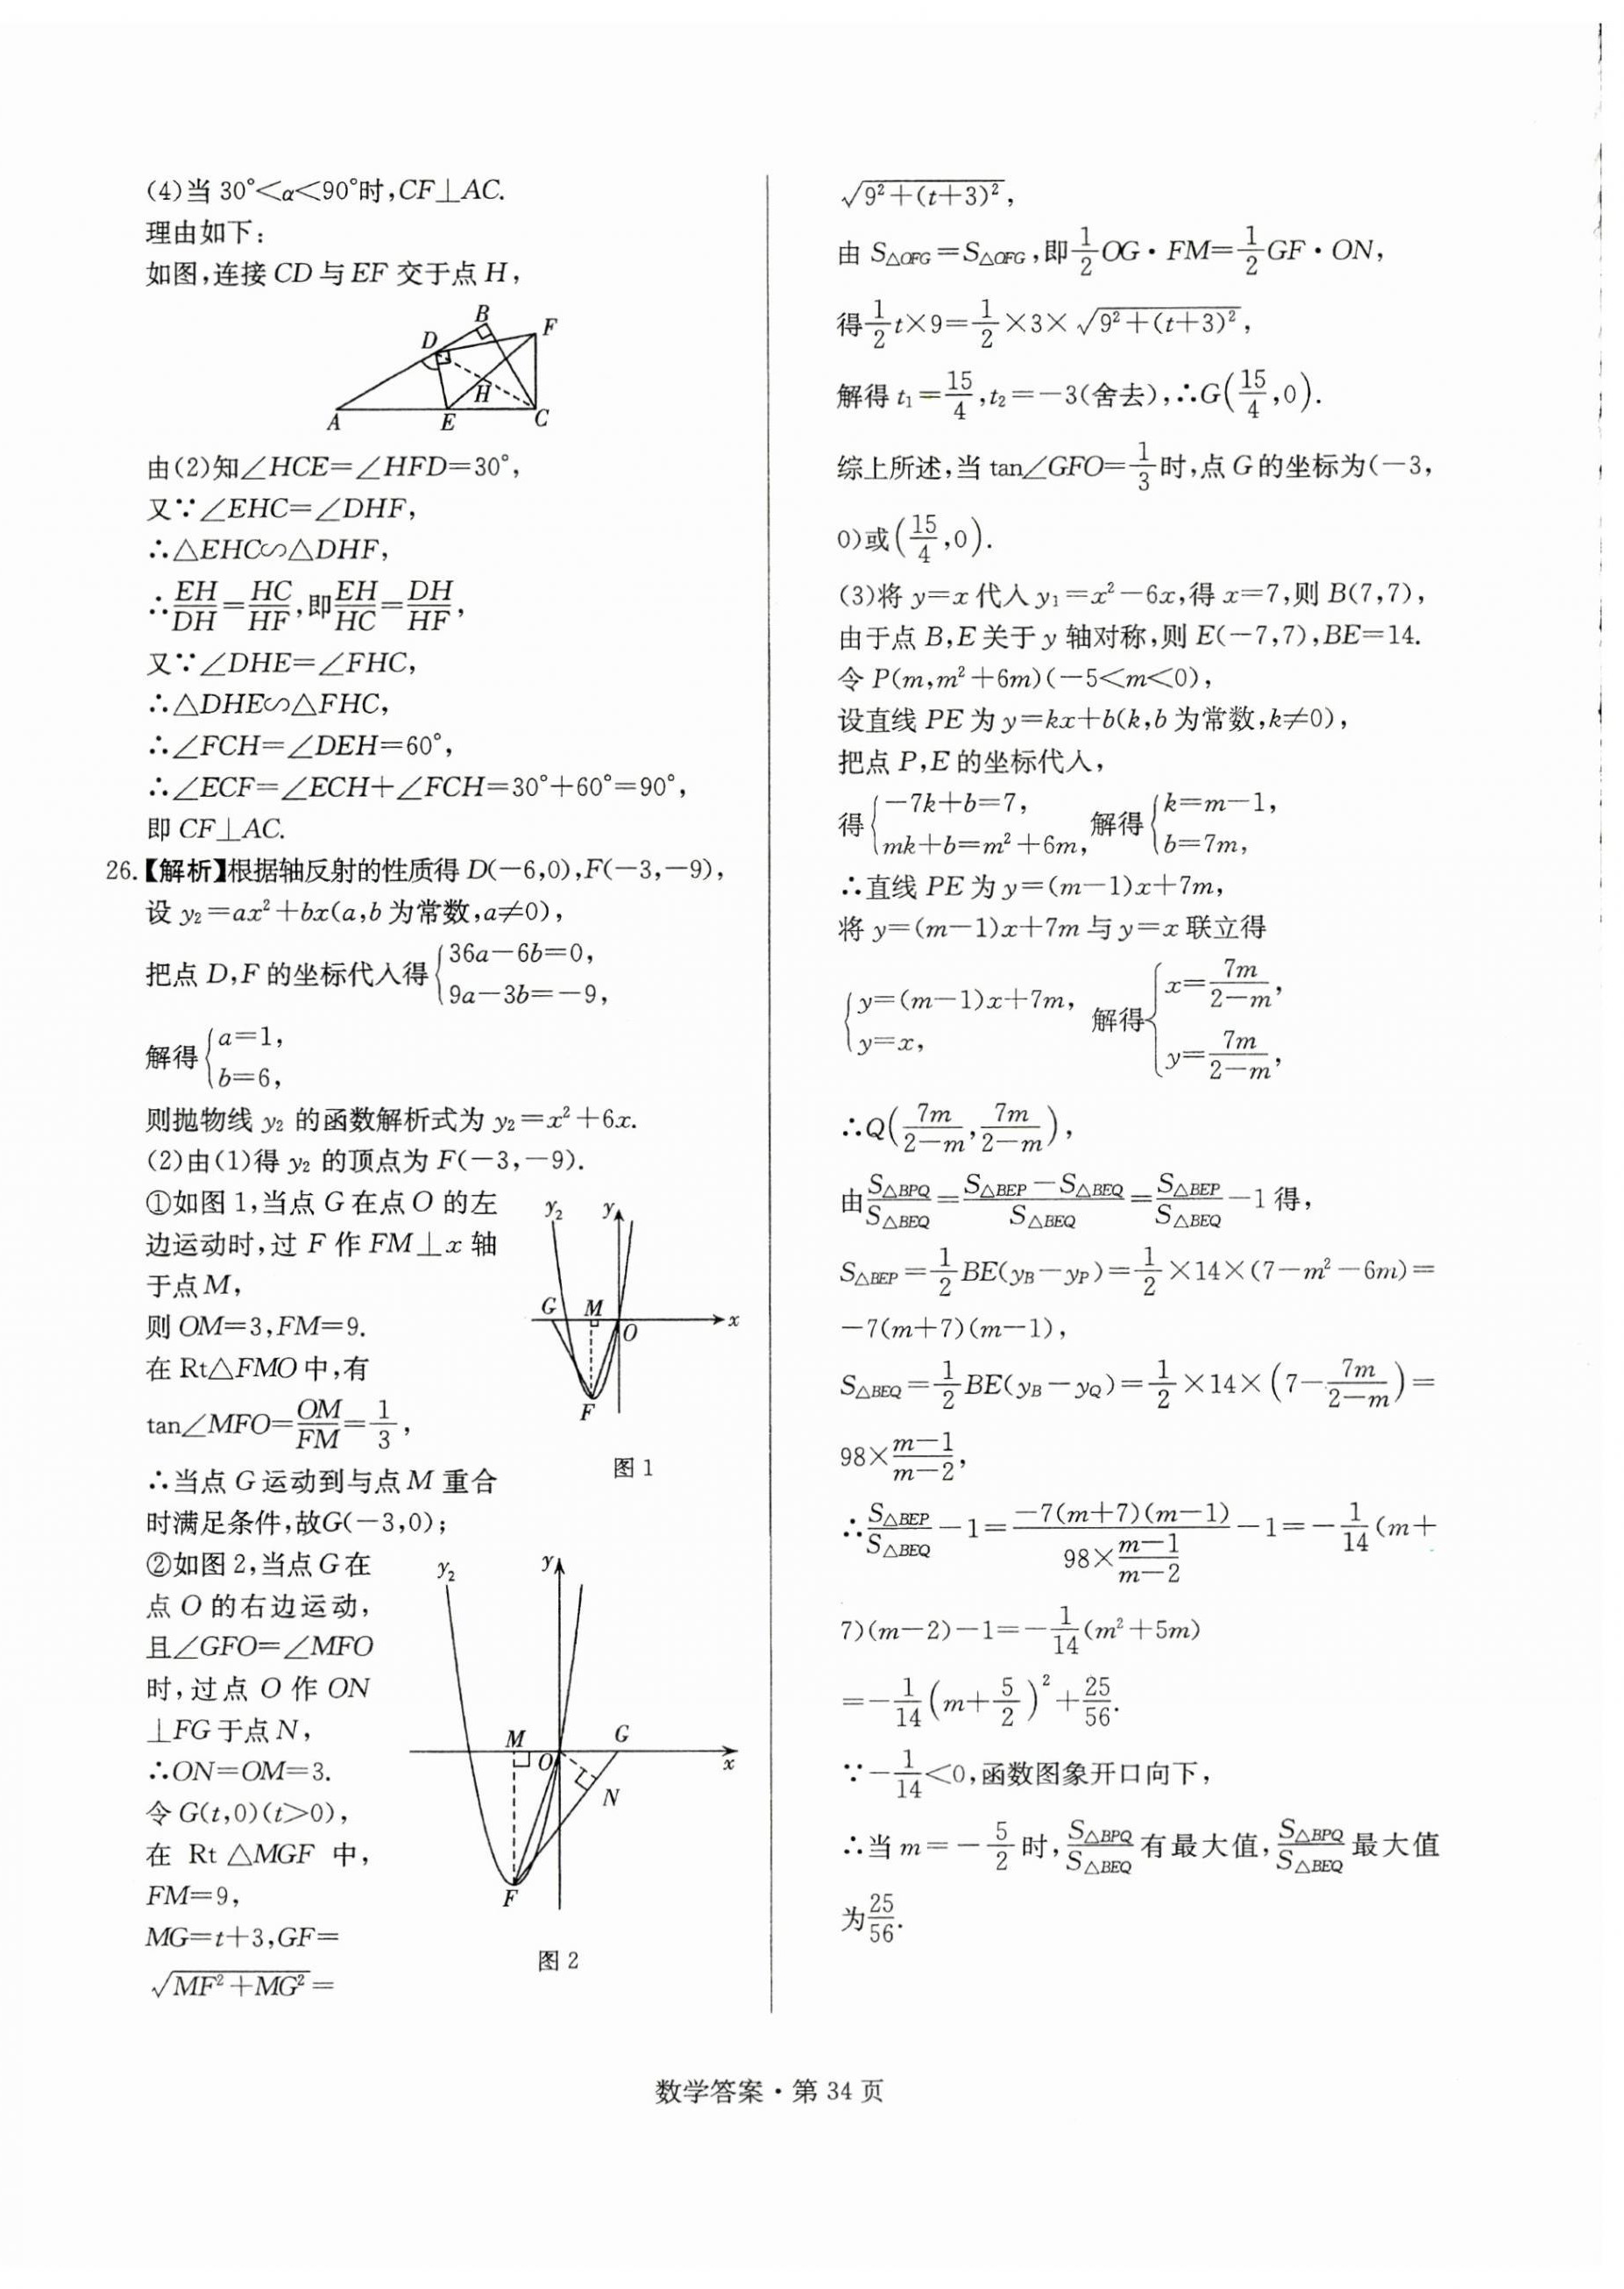 (4)当 30°<α<90°时,CF⊥AC.
理由如下:
如图,连接 CD 与 EF 交于点 H,
B
F
D
H
A
E
C
由(2)知∠HCE=∠HFD=30°,
又∵∠EHC=∠DHF,
∴△EHC∽△DHF,
∴EH/DH=HC/HF,即EH/HC=DH/HF,
又∵∠DHE=∠FHC,
∴△DHE∽△FHC,
∴∠FCH=∠DEH=60°,
∴∠ECF=∠ECH+∠FCH=30°+60°=90°,
即 CF⊥AC.
26.【解析】根据轴反射的性质得 D(-6,0),F(-3,-9),
设 y₂=ax²+bx(a,b 为常数,a≠0),
把点 D,F 的坐标代入得{36a-6b=0,
9a-3b=-9,
解得{a=1,
b=6,
则抛物线 y₂ 的函数解析式为 y₂=x²+6x.
(2)由(1)得 y₂ 的顶点为 F(-3,-9).
①如图 1,当点 G 在点 O 的左
边运动时,过 F 作 FM⊥x 轴
于点 M,
则 OM=3,FM=9.
在 Rt△FMO 中,有
tan∠MFO=OM/FM=1/3,
∴当点 G 运动到与点 M 重合
时满足条件,故G(-3,0);
y₂
y
G
M
O
x
F
图 1
②如图 2,当点 G 在
点 O 的右边运动,
且∠GFO=∠MFO
时,过点 O 作 ON
⊥FG 于点 N,
∴ON=OM=3.
令 G(t,0)(t>0),
在 Rt △MGF 中,
FM=9,
MG=t+3,GF=
√(MF²+MG²)=
y₂
y
M
O
G
x
N
F
图 2
√(9²+(t+3)²),
由 S△OFG=S△OFG,即1/2 OG·FM=1/2 GF·ON,
得1/2 t×9=1/2×3×√(9²+(t+3)²),
解得 t₁=15/4,t₂=-3(舍去),∴G(15/4,0).
综上所述,当 tan∠GFO=1/3时,点 G 的坐标为(-3,
0)或(15/4,0).
(3)将 y=x 代入 y₁=x²-6x,得 x=7,则 B(7,7),
由于点 B,E 关于 y 轴对称,则 E(-7,7),BE=14.
令 P(m,m²+6m)(-5<m<0),
设直线 PE 为 y=kx+b(k,b 为常数,k≠0),
把点 P,E 的坐标代入,
得{-7k+b=7,
mk+b=m²+6m,解得{k=m-1,
b=7m,
∴直线 PE 为 y=(m-1)x+7m,
将 y=(m-1)x+7m 与 y=x 联立得
{y=(m-1)x+7m,
y=x,解得{x=7m/(2-m),
y=7m/(2-m),
∴Q(7m/(2-m),7m/(2-m)),
由S△BPQ/S△BEQ=(S△BEP-S△BEQ)/S△BEQ=S△BEP/S△BEQ-1 得,
S△BEP=1/2 BE(yB-yP)=1/2×14×(7-m²-6m)=
-7(m+7)(m-1),
S△BEQ=1/2 BE(yB-yQ)=1/2×14×(7-7m/(2-m))=
98×(m-1)/(m-2),
∴S△BEP/S△BEQ-1=-7(m+7)(m-1)/(98×(m-1)/(m-2))-1=-1/14(m+
7)(m-2)-1=-1/14(m²+5m)
=-1/14(m+5/2)²+25/56.
∵-1/14<0,函数图象开口向下,
∴当 m=-5/2时,S△BPQ/S△BEQ有最大值,S△BPQ/S△BEQ最大值
为25/56.
数学答案·第 34 页